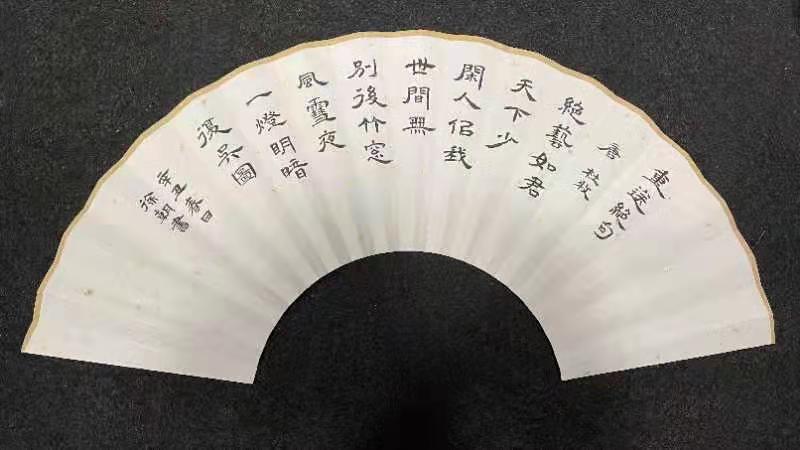 重送絕句
唐 杜牧
絕藝如君
天下少
閑人佀我
世間無
別後竹窓
風雪夜
一燈明暗
復吴圖
辛丑春日
徐朝書